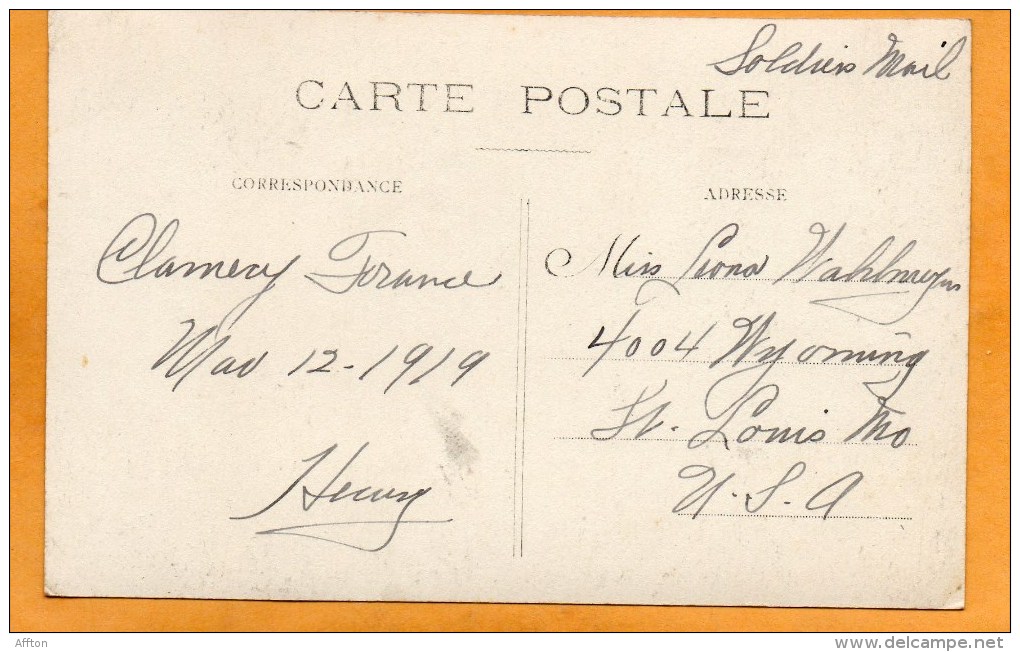 Soldiers Mail
CARTE POSTALE
CORRESPONDANCE
Clamecy France
Mar 12-1919
Henry
ADRESSE
Miss Leona
4004 Wyoming
St. Louis Mo
U.S.A
Affton
www.delcampe.net